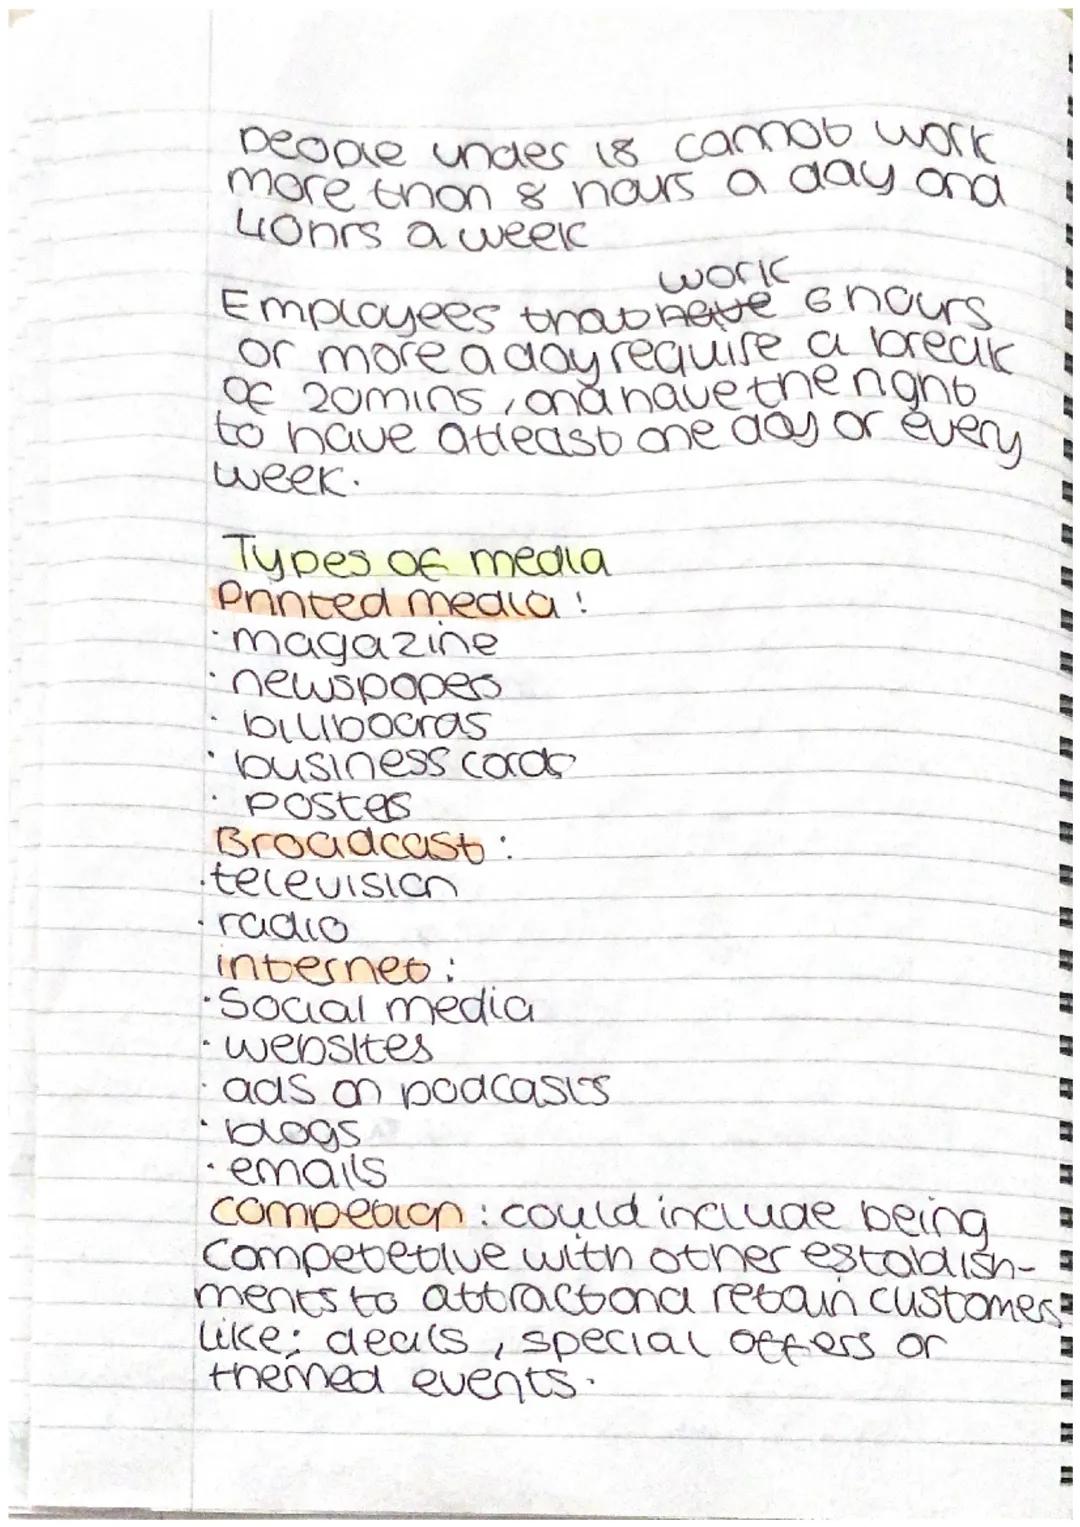 people under 18 cannot work
more than 8 hours a day and
40hrs a week
work
Employees that have 6 hours
or more a day require a break
of 20mins, and have the right
to have atleast one day or every
week.
Types of media
Printed media:
· magazine
· newspapers
· billboards
· business cards
· posters
Broadcast:
· television
· radio
internet:
· Social media
· websites
· ads on podcasts
· blogs
· emails
competion: could include being
Competetive with other establish-
ments to attract and retain customers
like: deals, special offers or
themed events.